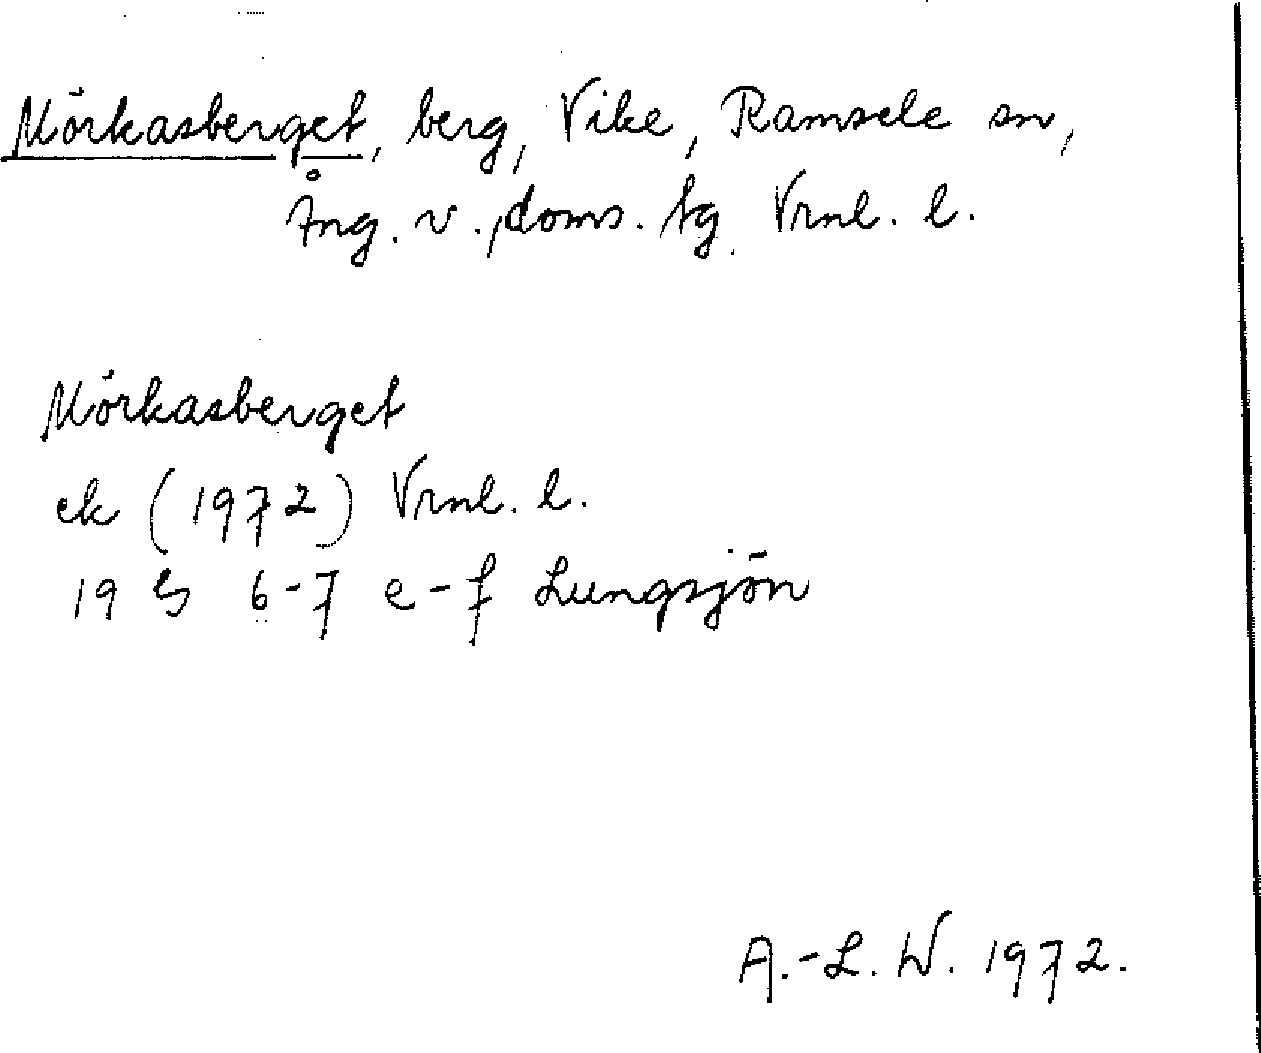 Mörkasberget, berg, Vike, Ramsele sn,
Ång. v., doms. tg. Vrnl. l.
Mörkasberget
ek (1972) Vrnl. l.
19 G 6-7 e-f Lungsjön
A.-L. W. 1972.